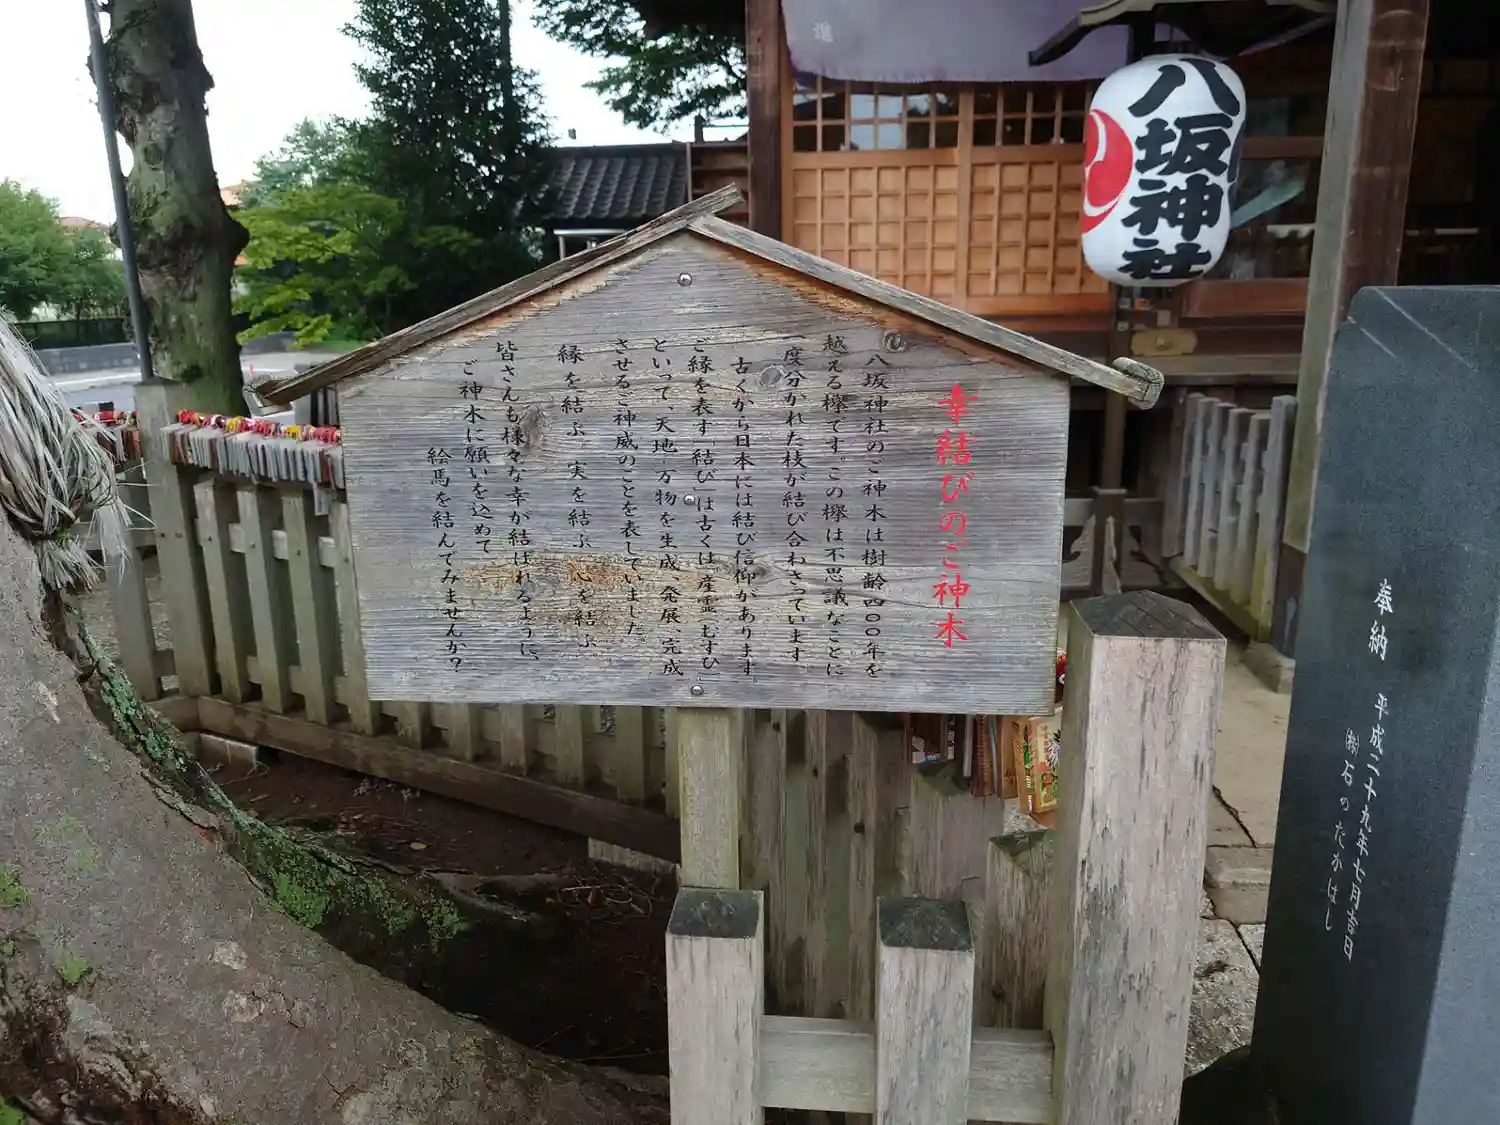 八坂神社
進
幸結びのご神木
八坂神社のご神木は樹齢四〇〇年を
越える欅です。この欅は不思議なことに
一度分かれた枝が結び合わさっています。
古くから日本には結び信仰があります。
ご縁を表す「結び」は古くは「産霊(むすひ)」
といって、天地・万物を生成、発展、完成
させるご神威のことを表していました。
縁を結ぶ。実を結ぶ。心を結ぶ。
皆さんも様々な幸が結ばれるように、
ご神木に願いを込めて
絵馬を結んでみませんか?
奉納 平成二十九年七月吉日
㈱石のたかはし